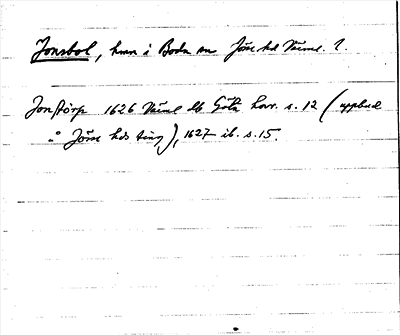 Jonsbol, hmn i Boda sn Jösse hd Värml. l.
Jonstorp 1626 Värml lb Götz Larr. s. 12 (uppbud
å Jösse hds ting), 1627 ib. s. 15.